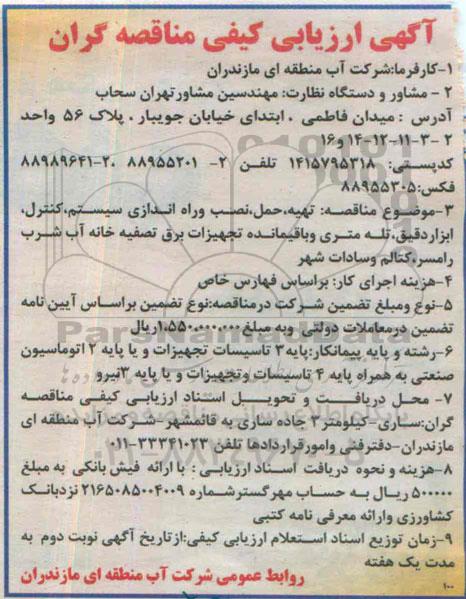 آگهی ارزیابی کیفی مناقصه گران
۱-کارفرما:شرکت آب منطقه ای مازندران
۲ - مشاور و دستگاه نظارت: مهندسین مشاورتهران سحاب
آدرس : میدان فاطمی ، ابتدای خیابان جویبار ، پلاک ۵۶ واحد
۲ -۳-۱۱-۱۲-۱۴و۱۶
کدپستی: ۱۴۱۵۷۹۵۳۱۸ تلفن ۲- ۸۸۹۵۵۲۰۱ ،۲-۸۸۹۸۹۶۴۱
فکس:۸۸۹۵۵۳۰۵
۳-موضوع مناقصه: تهیه،حمل،نصب وراه اندازی سیستم،کنترل،
ابزاردقیق،تله متری وباقیمانده تجهیزات برق تصفیه خانه آب شرب
رامسر،کتالم وسادات شهر
۴-هزینه اجرای کار: براساس فهارس خاص
۵-نوع ومبلغ تضمین شرکت درمناقصه:نوع تضمین براساس آیین نامه
تضمین درمعاملات دولتی وبه مبلغ ۱،۵۵۰،۰۰۰،۰۰۰ریال
۶-رشته و پایه پیمانکار:پایه۳ تاسیسات تجهیزات و یا پایه ۲ اتوماسیون
صنعتی به همراه پایه ۴ تاسیسات وتجهیزات و یا پایه ۳نیرو
۷- محل دریافت و تحویل اسناد ارزیابی کیفی مناقصه
گران:ساری-کیلومتر۳ جاده ساری به قائمشهر -شرکت آب منطقه ای
مازندران-دفترفنی وامورقراردادها تلفن ۳۳۳۴۱۰۲۳-۰۱۱
۸-هزینه و نحوه دریافت اسناد ارزیابی : با ارائه فیش بانکی به مبلغ
۵۰۰۰۰۰ ریال به حساب مهرگسترشماره ۲۱۶۵۰۸۵۰۰۴۰۰۹ نزدبانک
کشاورزی وارائه معرفی نامه کتبی
۹-زمان توزیع اسناد استعلام ارزیابی کیفی:ازتاریخ آگهی نوبت دوم به
مدت یک هفته
روابط عمومی شرکت آب منطقه ای مازندران
۱۰۰
ParsNamadData
پایگاه اطلاع رسانی مناقصه و مزایده